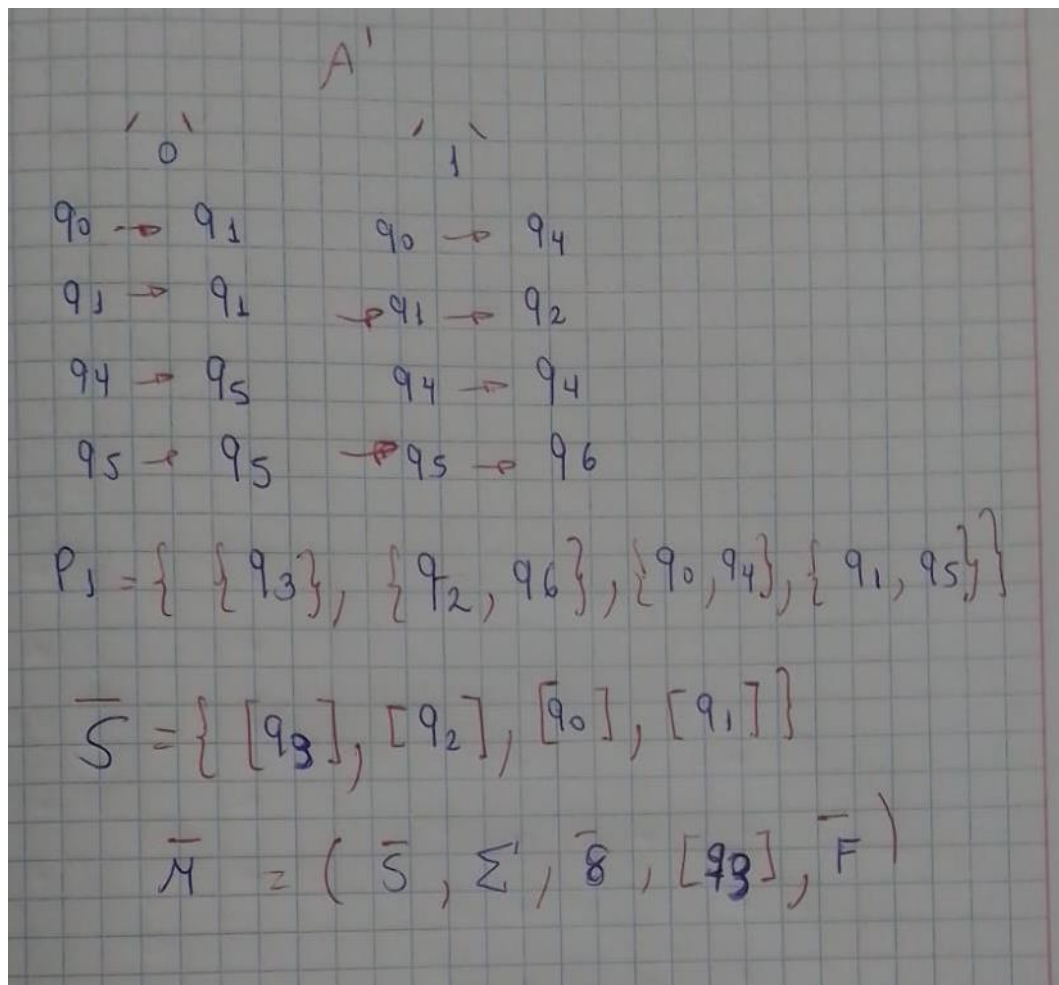 A'
'0' '1'
q0 → q1 q0 → q4
q1 → q1 → q1 → q2
q4 → q5 q4 → q4
q5 → q5 → q5 → q6
P1 = { {q3}, {q2, q6}, {q0, q4}, {q1, q5} }
S̅ = { [q3], [q2], [q0], [q1] }
M̅ = ( S̅, Σ, δ̅, [q3], F̅ )